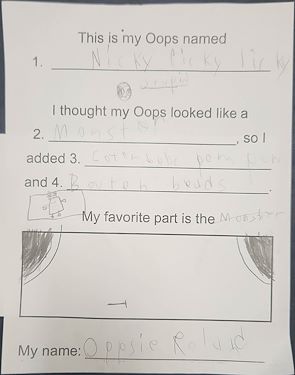 This is my Oops named
1. Nicky Picky Licky
I thought my Oops looked like a
2. Monster, so I
added 3. pom pom
and 4. Button beads.
My favorite part is the Monster
My name: Oppsie